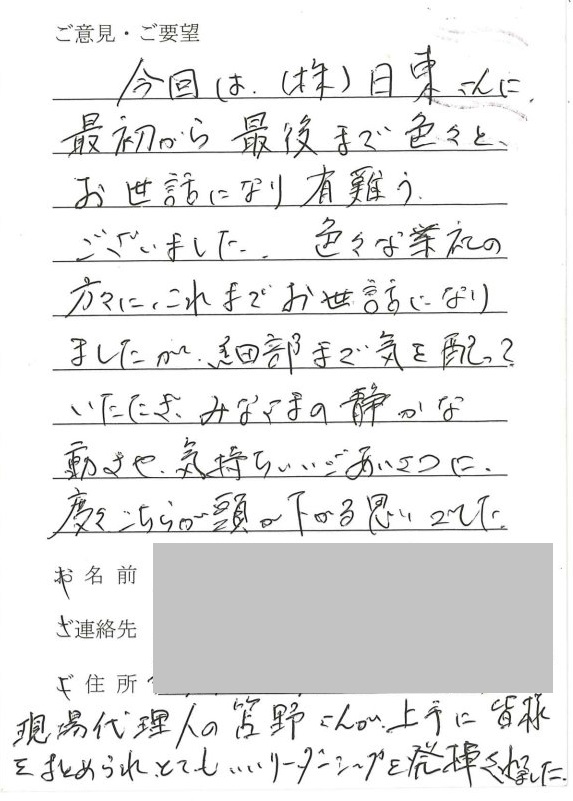 ご意見・ご要望
今回は、(株)日東さんに、
最初から最後まで色々と、
お世話になり有難う
ございました。色々な業社の
方々に、これまでお世話になり
ましたが、細部まで気を配って
いただき、みなさまの静かな
動きや、気持ちいいごあいさつに、
度々こちらが頭が下がる思いでした。
お名前
ご連絡先
ご住所
現場代理人の笘野さんが、上手に皆様
をまとめられ、とてもいいリーダーシップを発揮されました。